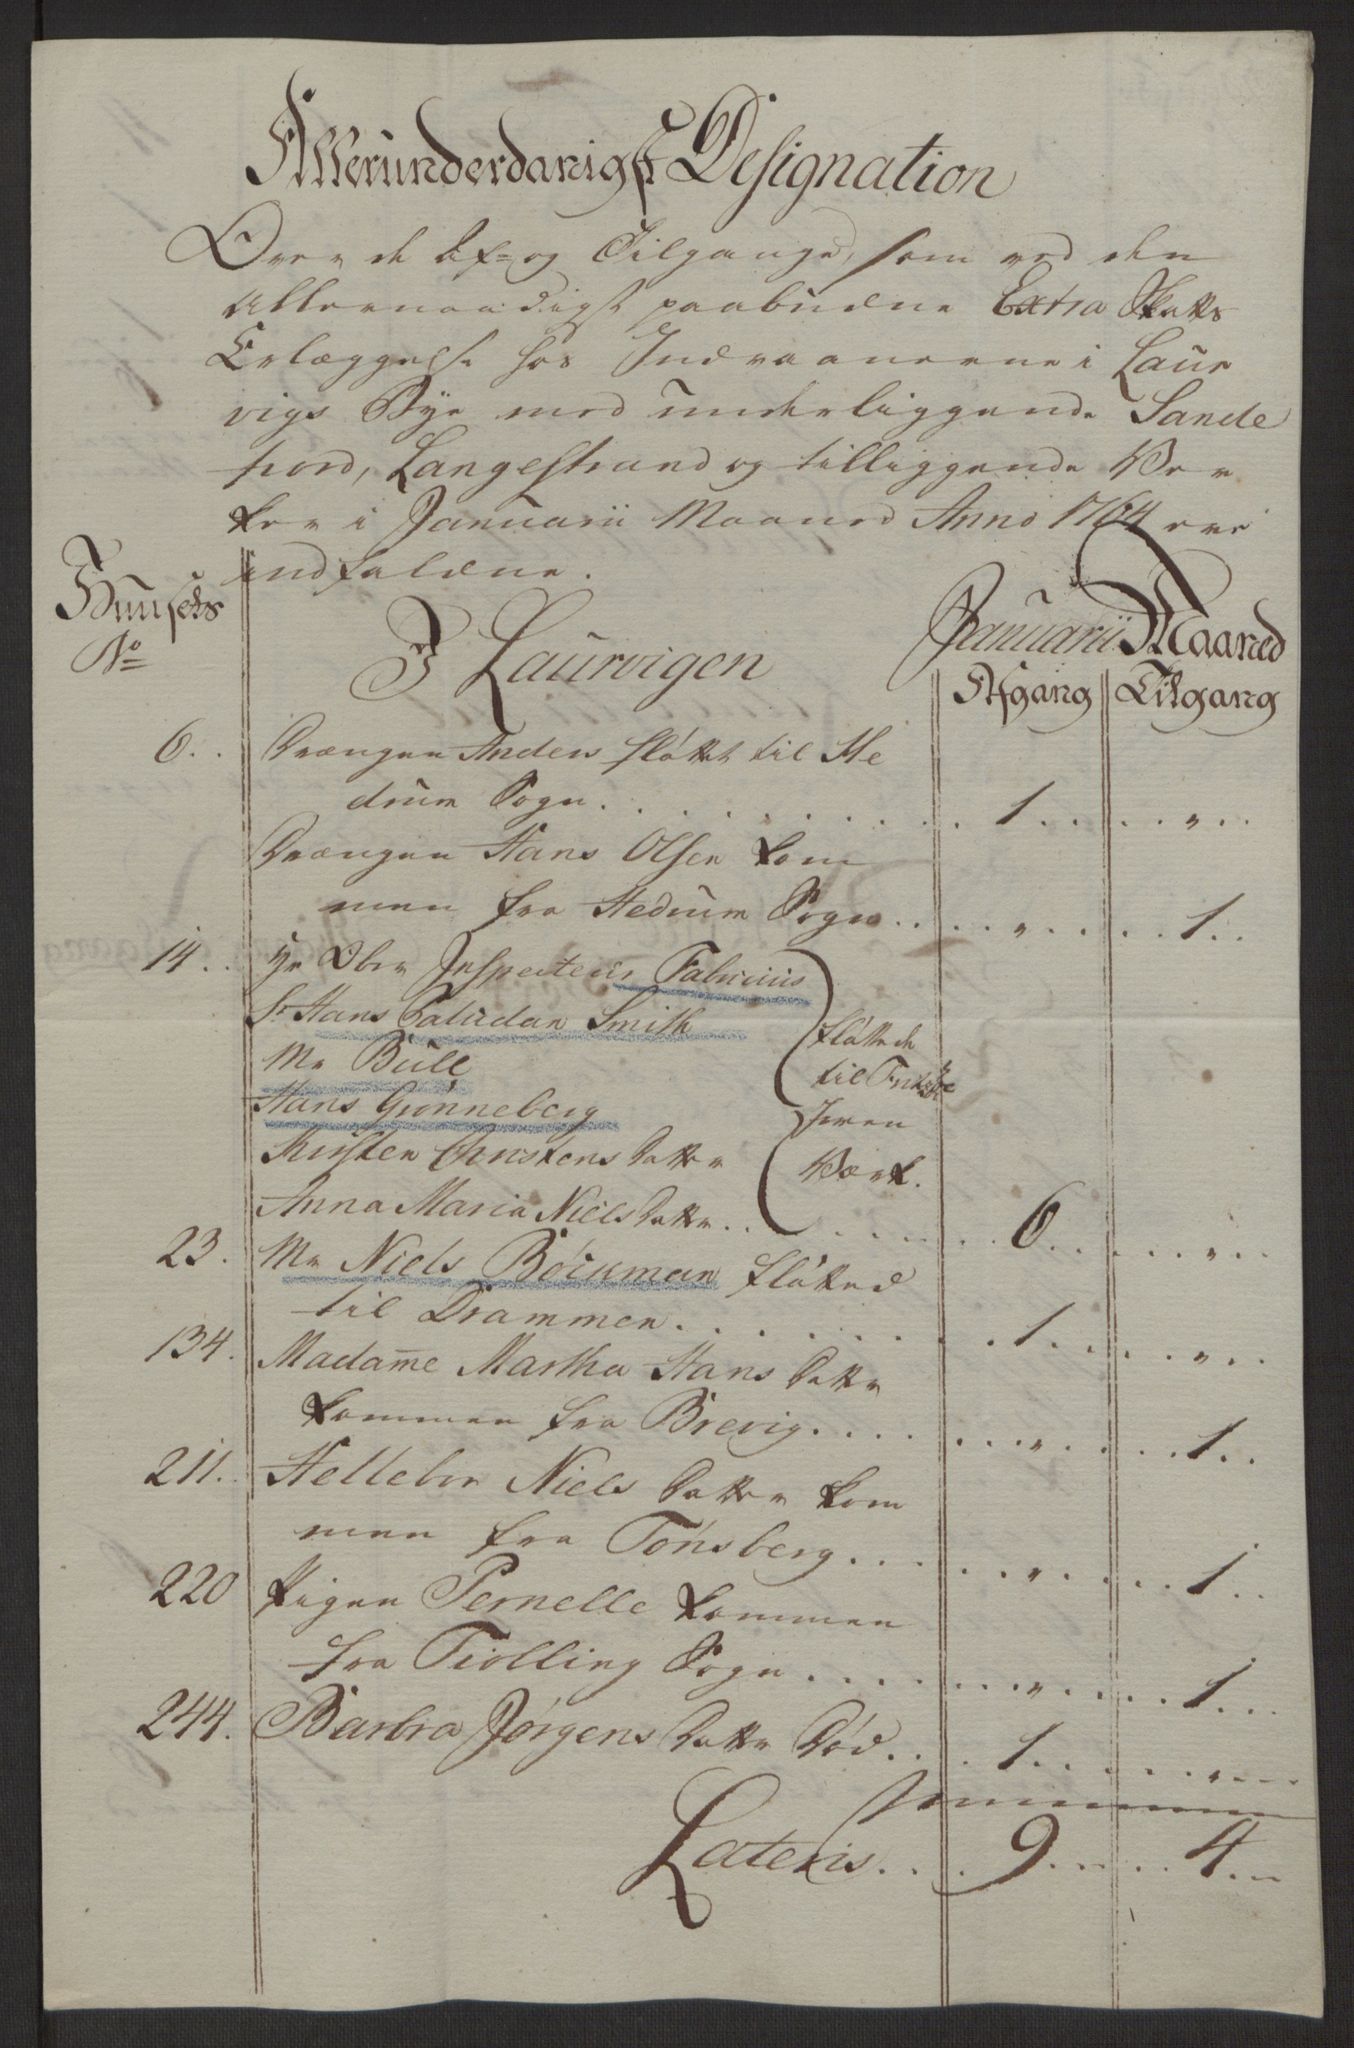 Allerunderdanigst Designation
Over de Af- og Tilgange, som ved den
Allernaadigst paabudne Extra Skatts
Erlæggelse hos Indvaanerne i Laur
vigs Bye med underliggende Sande
fiord, Langestrand og tilliggende Ver
ker i Januarii Maaned Anno 1764 ere
indfaldne.
Huusets
No
I Laurvigen
Januarii Maaned
Afgang Tilgang
6.. Drængen Anders fløttet til He
drum Sogn. . . . 1. . . . „ . .
Drængen Hans Olsen kom
men fra Hedrum Sogn . . . „ . . . . 1. .
14.. Hr Ober Inspecteur Fabricius
Sr Hans Paludan Smith
Mr Bull
Hans Grønneberg
Kirsten Christens Datter
Anna Maria Niels Datter. .
fløttede
til Fritzøe
Jern
Værk.
6. . . . „ . .
23. Mr Niels Böckman fløtted
til Drammen. . . . 1. . . . „ . .
134. Madame Martha Hans Datter
kommen fra Brevig. . . . „ . . . . 1. .
211. Hellebor Niels Datter kom
men fra Tønsberg. . . . „ . . . . 1. .
220 Pigen Pernelle kommen
fra Tiølling Sogn . . . . „ . . . . 1. .
244. Barbra Jørgens Datter Død. . . . 1. . . . „ . .
Lateris. . . 9. . . . 4. .